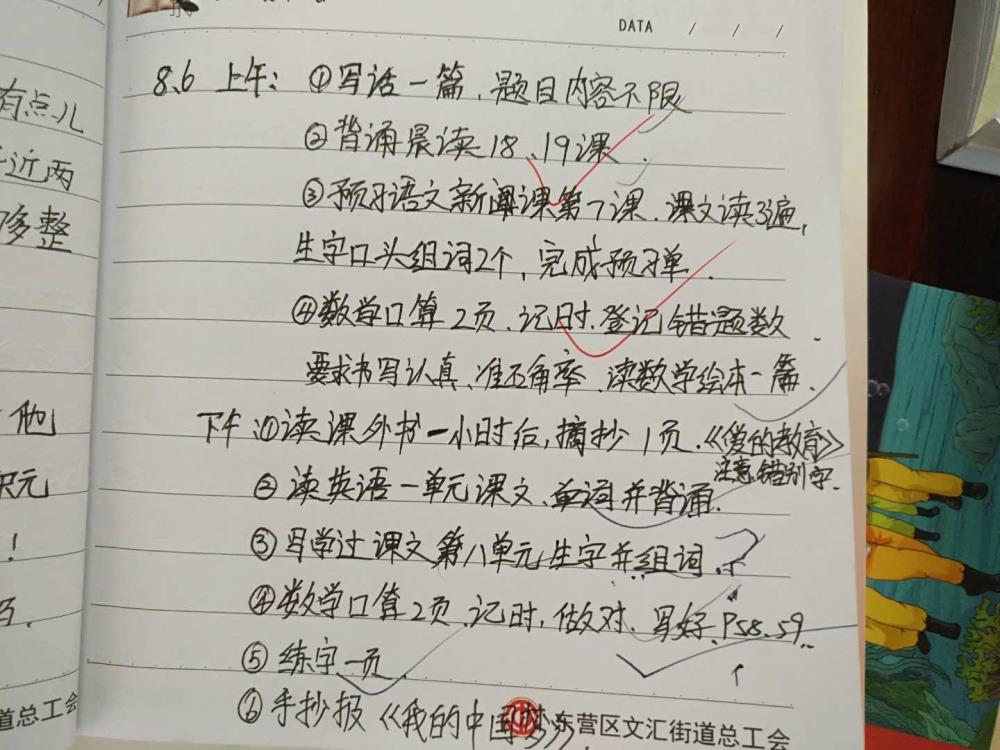 DATA / / /
8.6 上午: ①写话一篇、题目内容不限
②背诵晨读18、19课.
③预习语文新闻课第7课、课文读3遍,
生字口头组词2个, 完成预习单.
④数学口算2页、记时、登记错题数
要求书写认真、准确率、读数学绘本一篇.
下午:①读课外书一小时后,摘抄1页.《爱的教育》
注意错别字.
②读英语一单元课文、单词并背诵.
③写学过课文第八单元生字并组词.
④数学口算2页、记时、做对、写好、P58、59.
⑤练字一页
⑥手抄报《我的中国梦》
东营区文汇街道总工会
有点儿
近两
够整
他
!
道总工会